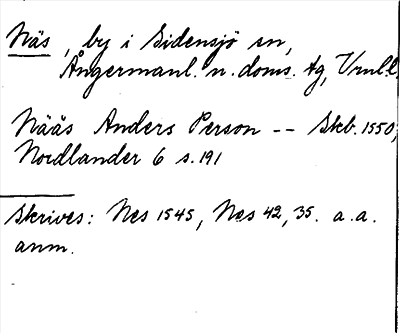 Näs, by i Sidensjö sn,
Ångermanl. n. doms. tg, Vrnll.
Nääs Anders Person -- Skb. 1550,
Nordlander 6 s. 191
Skrives: Nes 1545, Nes 42, 35. a.a.
anm.